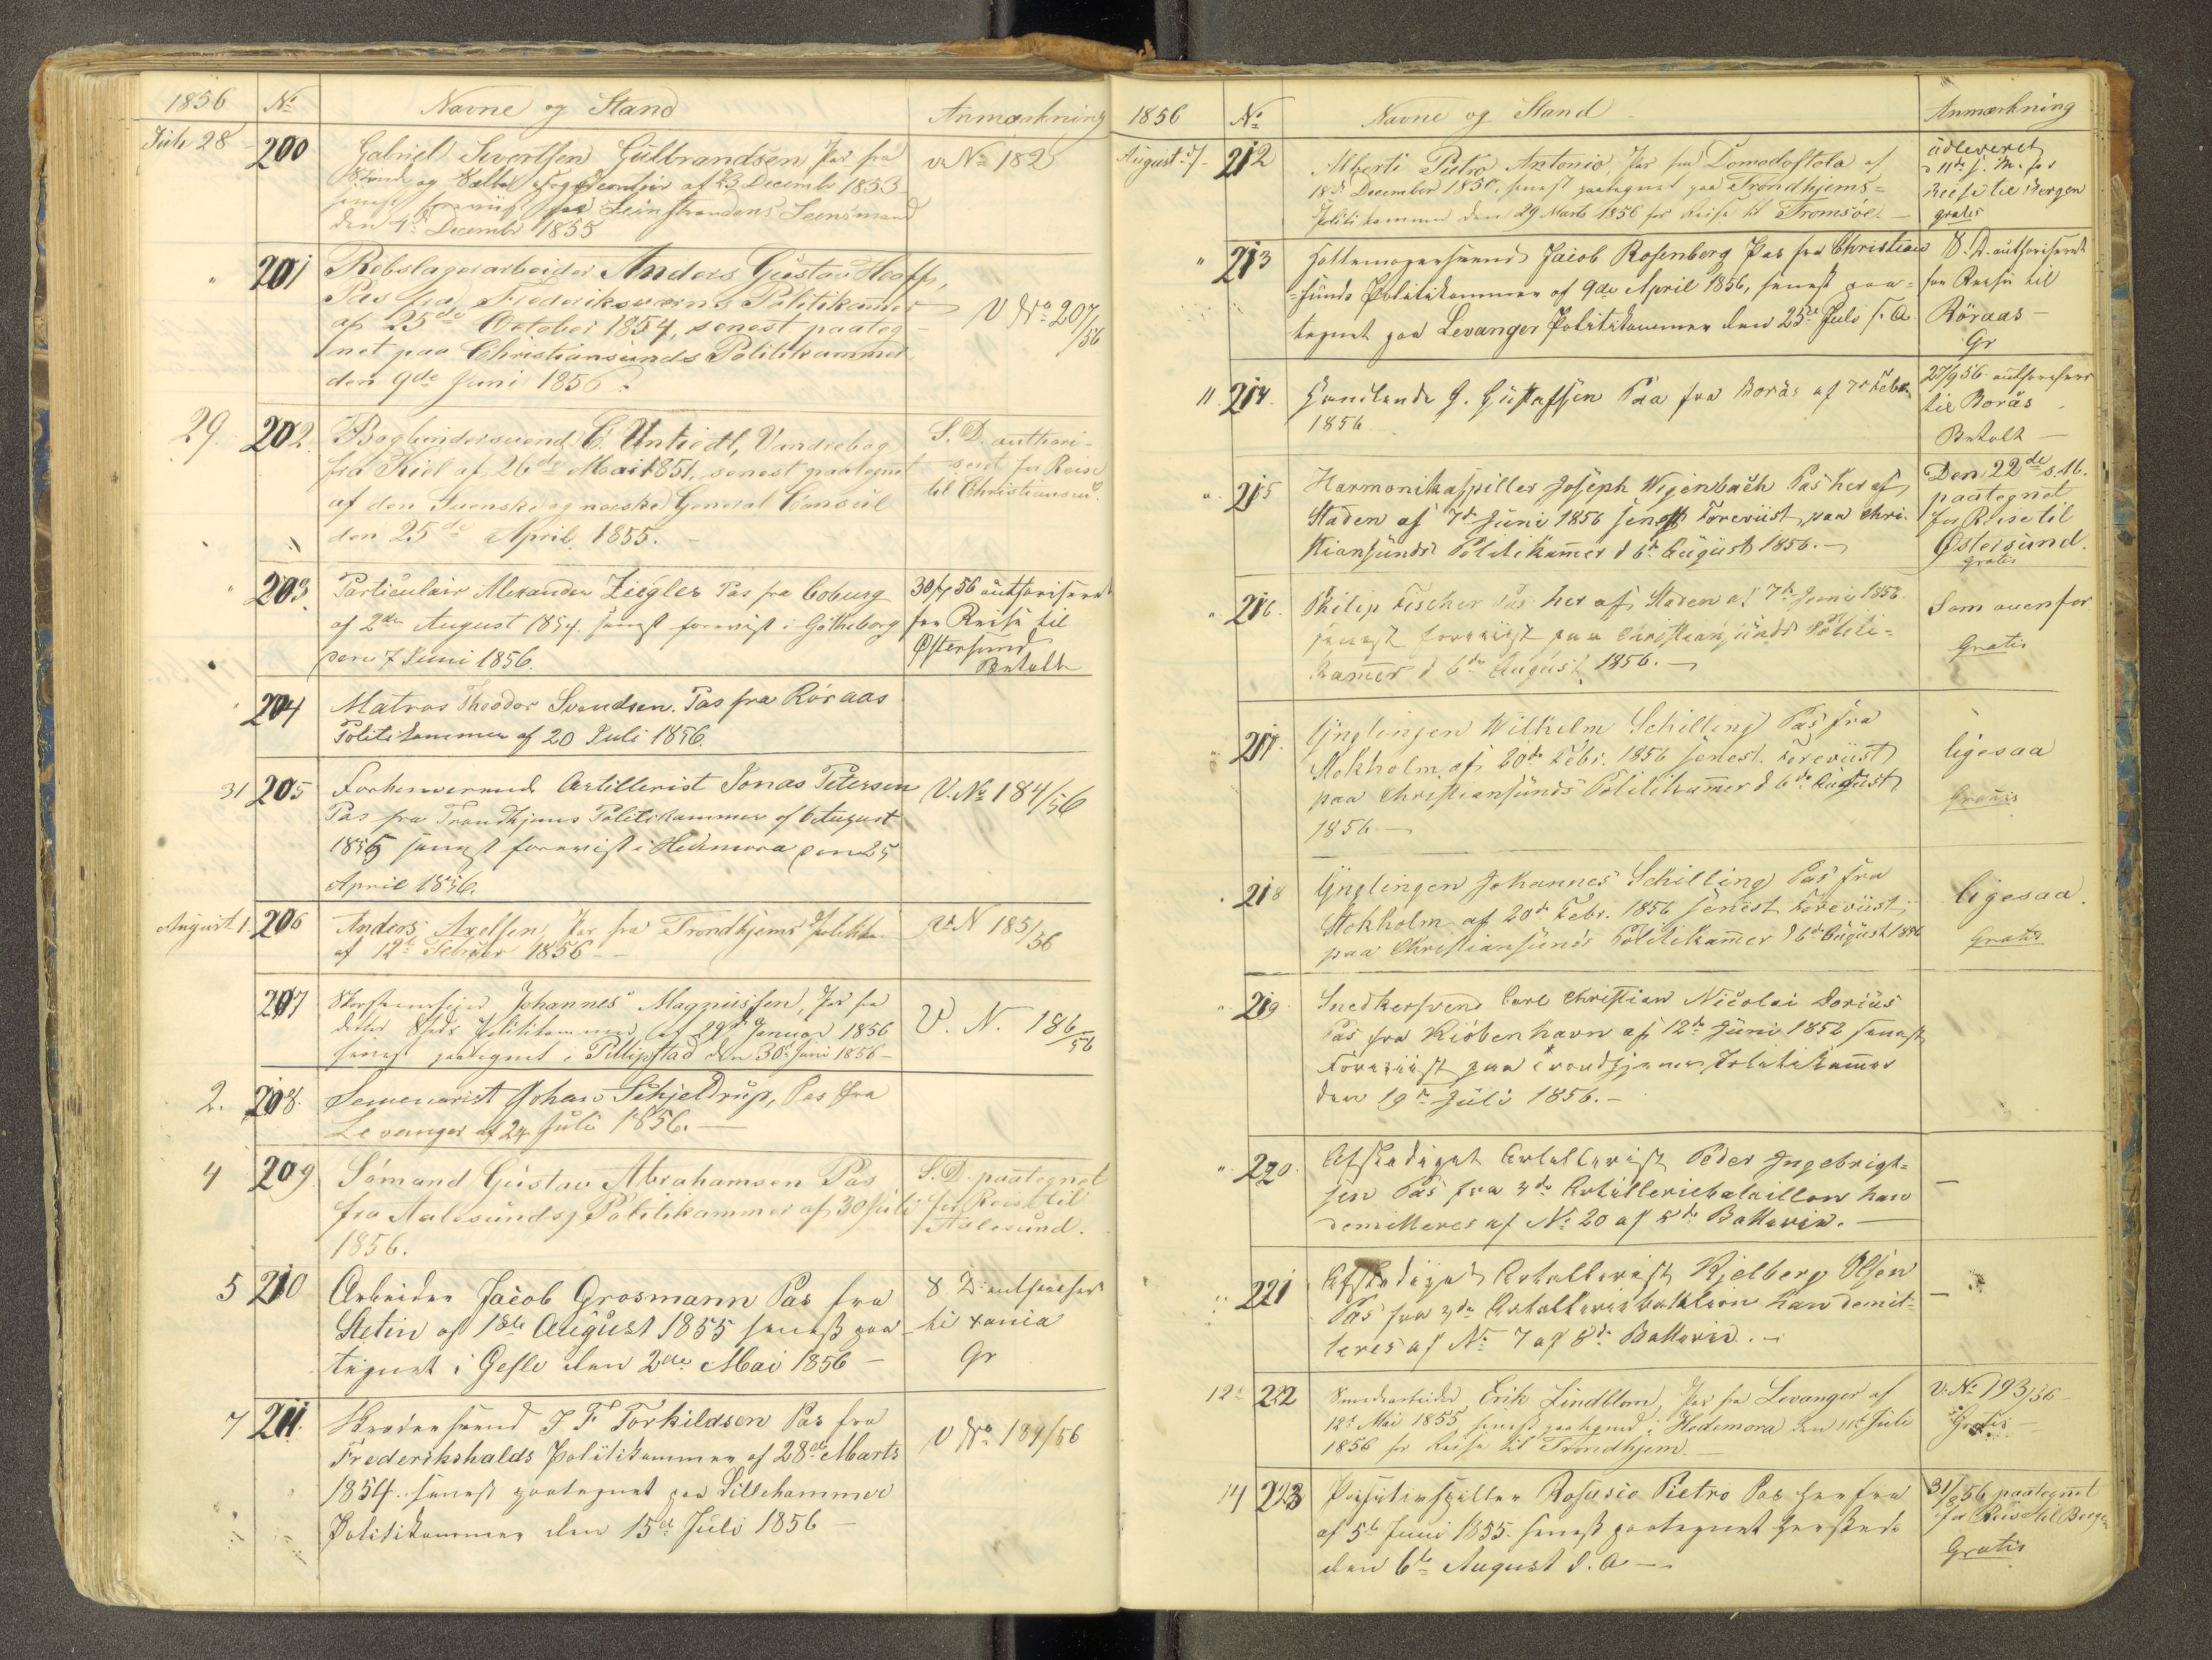 1856 No Navne og Stand Anmærkning
Juli 28 200 Gabriel Sivertsen Gulbrandsen Pas fra v No 182
og Fogedcontoir af 23 December 1853
senest foreviist hos Leinstrandens Lensmand
den 4de December 1855
" 201 Rebslagerarbeider Anders Gustav Hoff,
Pas fra Frederiksværns Politikammer V No 207/56
af 25de October 1854, senest paateg
net paa Christiansunds Politikammer
den 9de Juni 1856.
29. 202. Bogbindersvend C. Untiedt, Vandrebog S. D. authori-
fra Kiel af 26de Mai 1851, senest paategnet seret for Reise
af den Svenske og norske General Consul til Christianssu.
den 25de April 1855.
" 203. Particulair Alexander Ziegler Pas fra Coburg 30/7 56 authoriseret
af 2den August 1854. senest foreviist i Götheborg for Reise til
den 7 Juni 1856. Østersund
Betalt
" 204 Matros Theodor Svendsen. Pas fra Röraas
Politikammer af 20 Juli 1856.
31 205 Forhenværende Artillerist Jonas Petersen V. No 184/56
Pas fra Trondhjems Politikammer af 6 August
1855 senest foreviist i Hedemora den 25
April 1856.
August 1. 206 Anders Axelsen, Pas fra Trondhjems Politik. V N 185/56
af 12te Februar 1856
207 Johannes Magnussen, Pas fra
dette Steds Politikammer af 29de Januar 1856 V. N. 186/56
senest paategnet i Fillipstad den 30de Juni 1856
2. 208. Semenarist Johan Schjeldrup, Pas fra
Levanger af 24 Juli 1856.
4 209 Sömand Gustav Abrahamsen Pas S. D. paategnet
fra Aalesunds Politikammer af 30 Juli for Reise til
1856. Aalesund.
5 210 Arbeider Jacob Grosmann Pas fra S D authoriser
Stetin af 18de August 1855 senest paa- til Xania
tegnet i Gefle den 2den Mai 1856 Gr
7 211. J F Torkildsen Pas fra
Frederikshalds Politikammer af 28de Marts V No 189/56
1854. senest paategnet paa Lillehammer
Politikammer den 15de Juli 1856
1856 No Navne og Stand Anmærkning
August 7. 212 Alberti Pietro Antonio, Pas fra Domodossola af udleveret
18de December 1850, senest paategnet paa Trondhjems= 11te s. M. for
Politikammer den 29 Marts 1856 for Reise til Tromsöe. Reise til Bergen
gratis
" 213 Jacob Rosenberg Pas fra Christian S. D. authoriseret
=sunds Politikammer af 9de April 1856, senest paa= for Reise til
tegnet paa Levanger Politikammer den 25de Juli s. A. Röraas
Gr
" 214. Handlende G. Gustafssen Pas fra Borås af 7de Febr. 27/9 56 authoriseret
1856 til Borås
Betalt
" 215 Harmonikaspiller Joseph Wejenbach Pas her af Den 22de s. M.
Staden af 7de Juni 1856 senest Foreviist paa Chri- paategnet
stiansunds Politikammer d 6te August 1856. for Reise til
Østersund.
gratis
" 216. Philip Fischer Pas her af Staden af 7de Juni 1856 Som ovenfor
senest foreviist paa Christiansunds Politi=
kammer d 6te August 1856. Gratis
" 217. Ynglingen Wilhelm Schilling Pas fra
Stokholm af 20de Febr. 1856 senest. Foreviist ligesaa
paa Christiansunds Politikammer d 6te August
1856 Gratis
" 218 Ynglingen Johannes Schilling Pas fra ligesaa.
Stokholm af 20de Febr. 1856 senest Foreviist
paa Christiansunds Politikammer d 6te August 1856 Gratis
" 219. Snedkersvend Carl Christian Nicolai Dorius
Pas fra Kiöbenhavn af 12te Juni 1856 senest
Foreviist paa Trondhjems Politikammer
den 19de Juli 1856.
" 220. Afskediget Artillerist Peder Ingebrigt=
sen Pas fra 3de Artilleriebataillon han —
demitteres af No 20 af 5te Batterie.
221 Afskediget Artillerist Kjelberg Olsen
Pas fra 3de han demit= —
teres af No 7 af 8de Batterie.
12te 222 Erik Lindblom, Pas fra Levanger af V. No 193/56
12te Mai 1855 senest paategnet i Hedemora den 11te Juli Gratis
1856 for Reise til Trondhjem.
14 223 Rosasio Pietro Pas herfra 31/8 56 paategnet
af 5te Juni 1855. senest paategnet hersteds for Reise til Bergen
den 6te August d. A Gratis